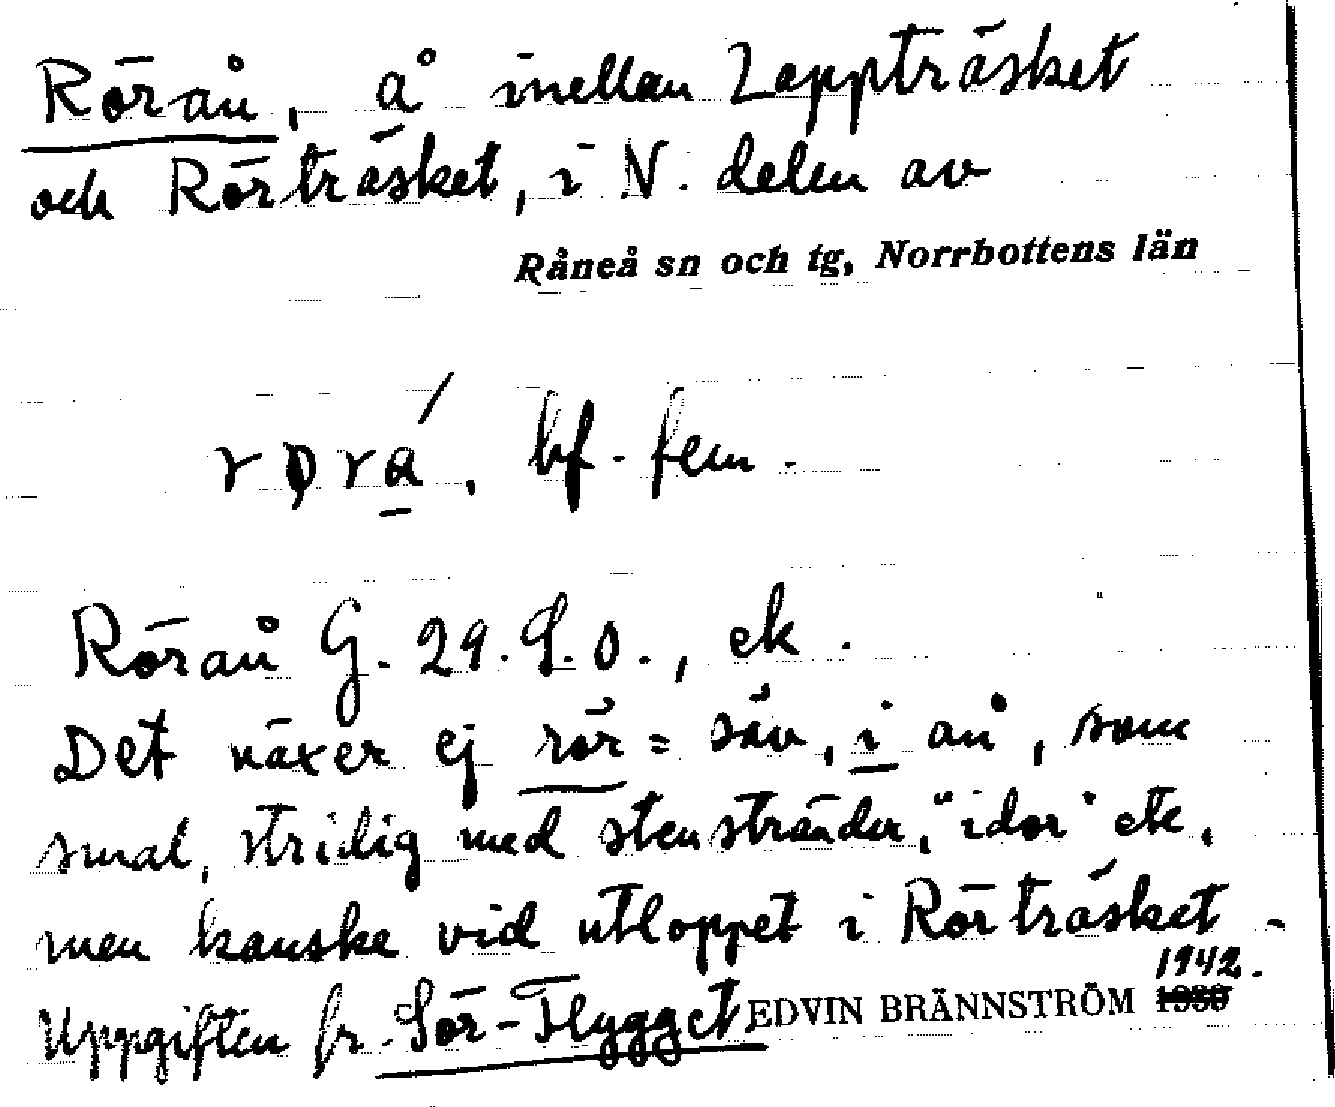 Röran, å mellan Lappträsket
och Rörträsket, i N. delen av
Råneå sn och tg, Norrbottens län
bf. fem.
Röran G. 29. S. o., ek.
Det växer ej rör = säv, i ån, som
smal, stridig med stenstränder, "idor" etc,
men kanske vid utloppet i Rörträsket -
Uppgiften fr. Sör-Flygget EDVIN BRÄNNSTRÖM 1942.